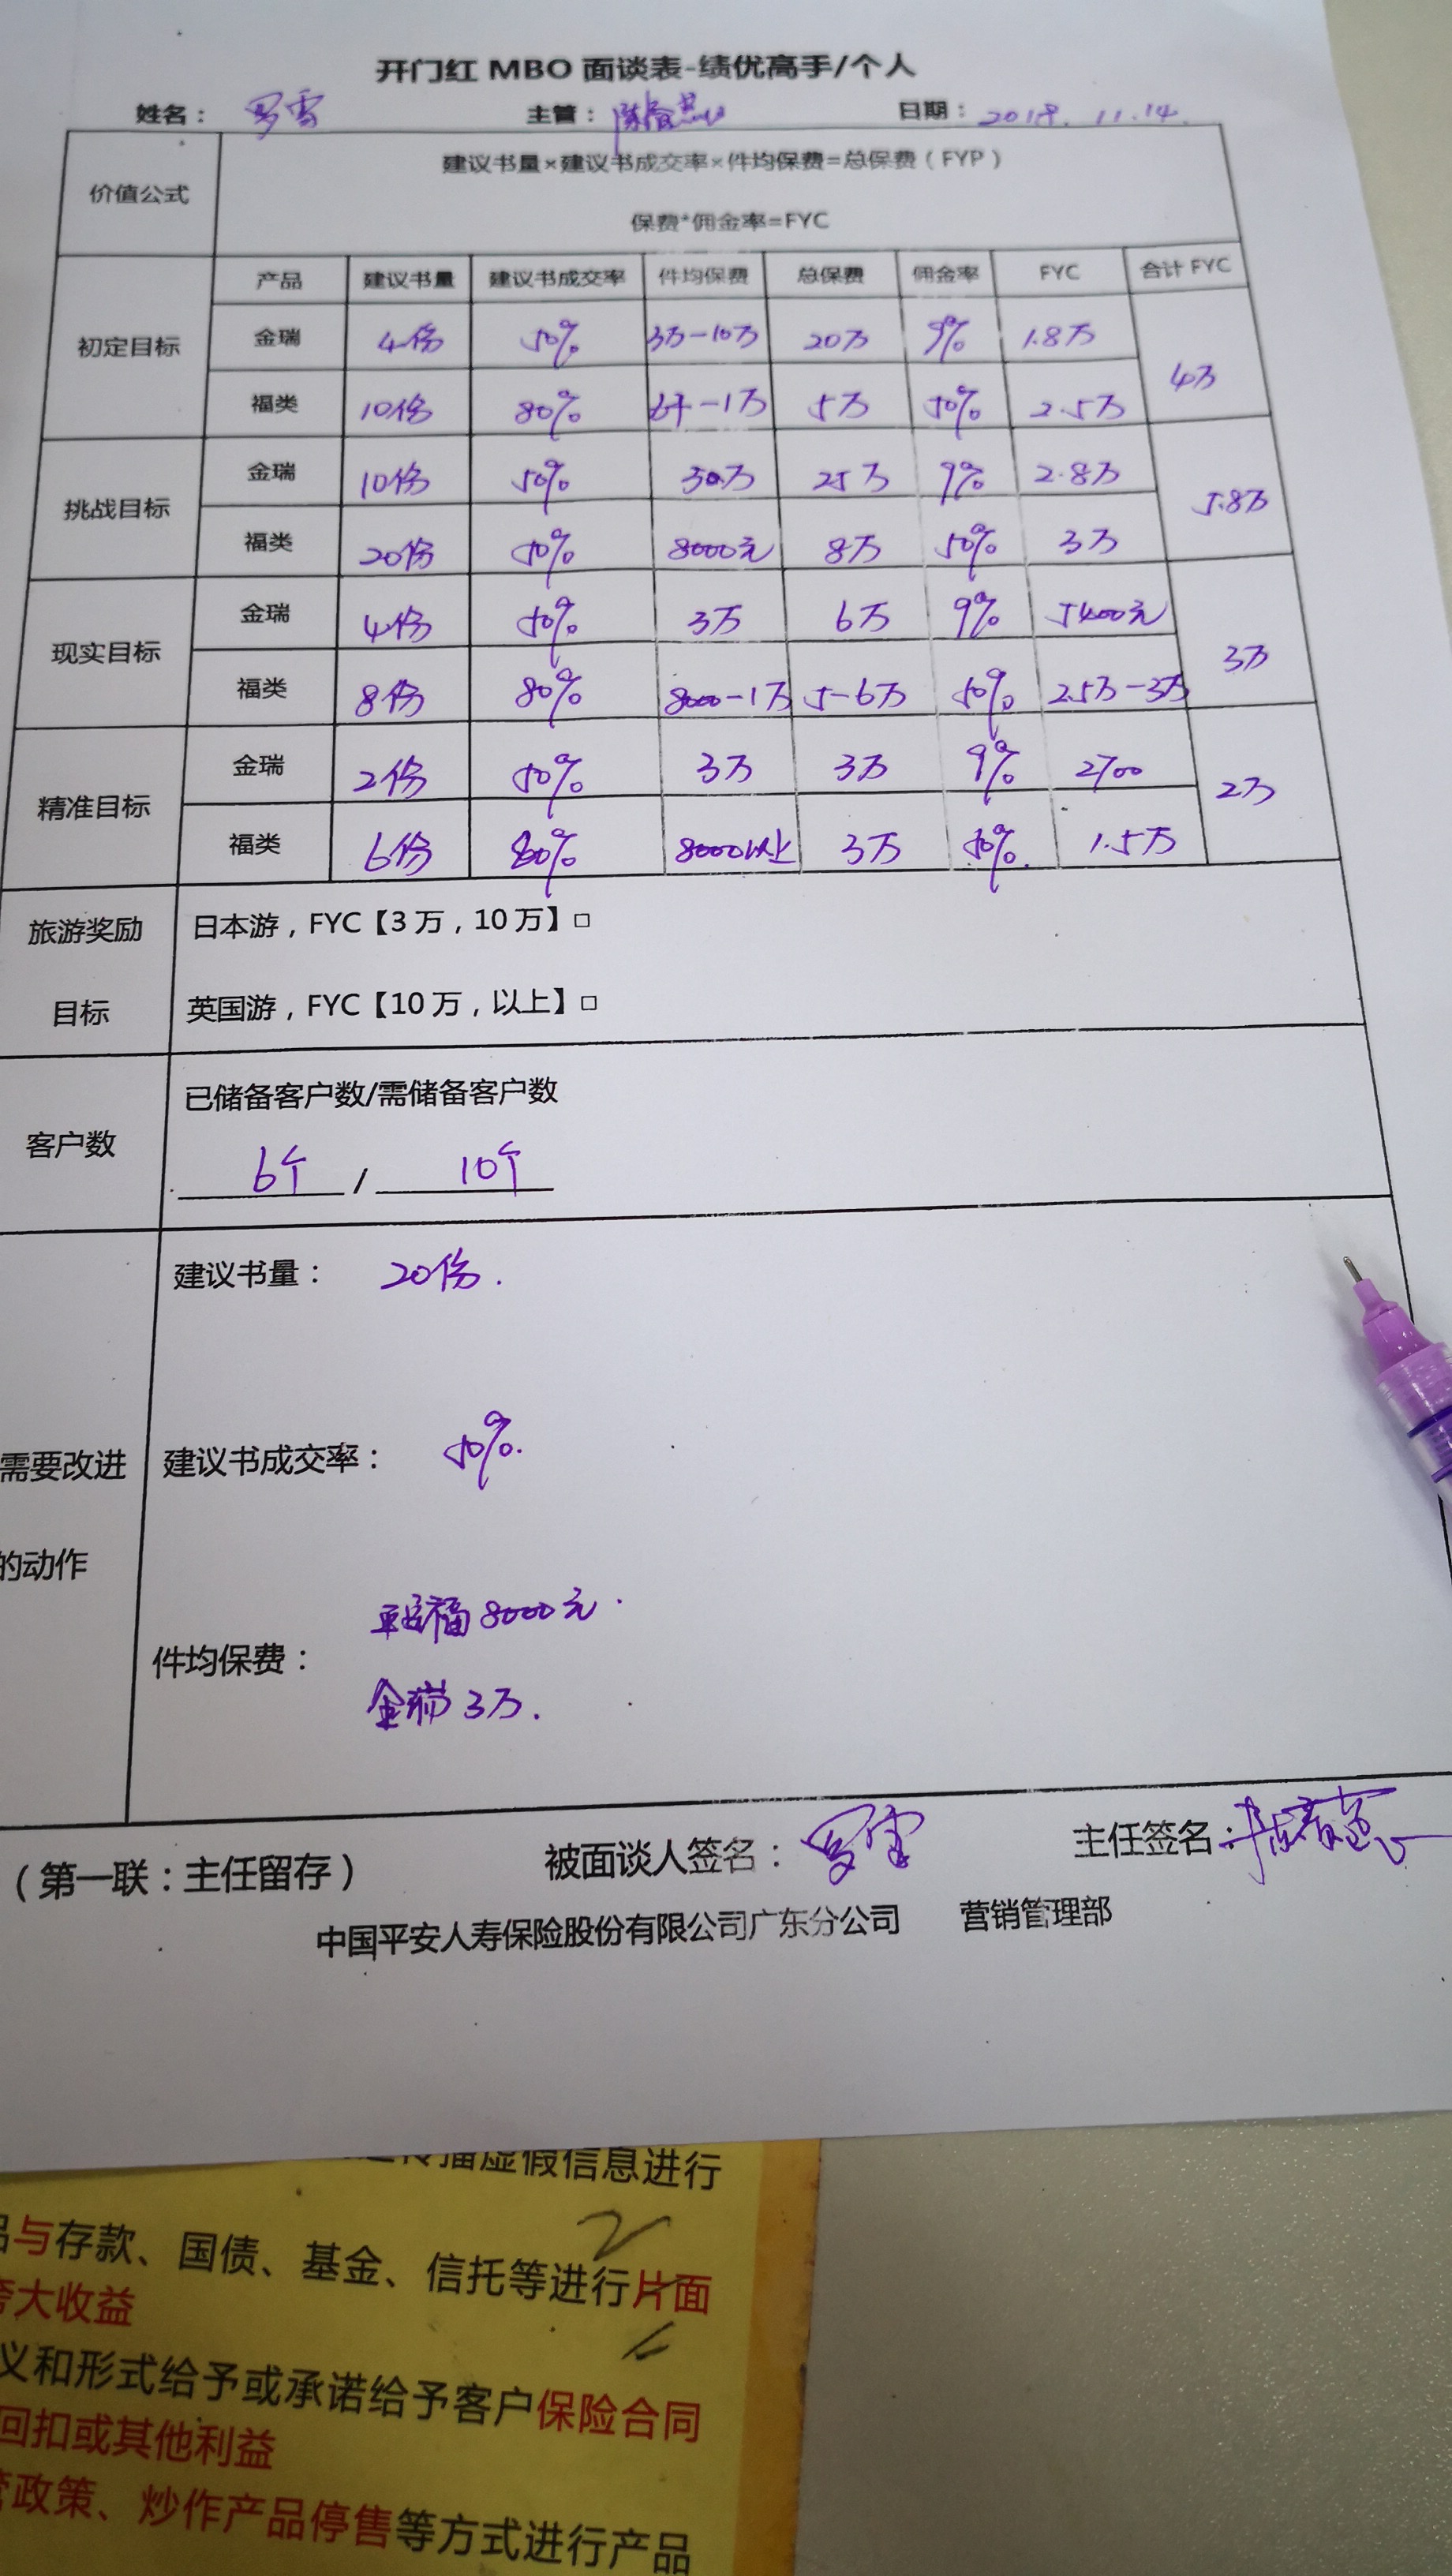 开门红 MBO 面谈表-绩优高手/个人
姓名： 罗雪 主管： 日期：2018. 11.14.
价值公式 建议书量×建议书成交率×件均保费=总保费（FYP）
保费*佣金率=FYC
产品 建议书量 建议书成交率 件均保费 总保费 佣金率 FYC 合计 FYC
初定目标 金瑞 4份 50% 3万-10万 20万 9% 1.8万 4万
福类 10份 80% 6千-1万 5万 50% 2.5万
挑战目标 金瑞 10份 50% 30万 25万 9% 2.8万 5.8万
福类 20份 50% 8000元 8万 50% 3万
现实目标 金瑞 4份 50% 3万 6万 9% 5400元 3万
福类 8份 80% 8000-1万 5-6万 50% 2.5万-3万
精准目标 金瑞 2份 50% 3万 3万 9% 2700 2万
福类 6份 80% 8000以上 3万 50%. 1.5万
旅游奖励 日本游，FYC【3 万，10 万】□
目标 英国游，FYC【10 万，以上】□
客户数 已储备客户数/需储备客户数
6个 / 10个
建议书量： 20份.
需要改进 建议书成交率： 50%.
的动作
平安福 8000元.
件均保费：
金瑞 3万.
（第一联：主任留存） 被面谈人签名： 罗雪 主任签名：
中国平安人寿保险股份有限公司广东分公司 营销管理部
传播虚假信息进行
2
品与存款、国债、基金、信托等进行片面
夸大收益
义和形式给予或承诺给予客户保险合同
回扣或其他利益
管政策、炒作产品停售等方式进行产品